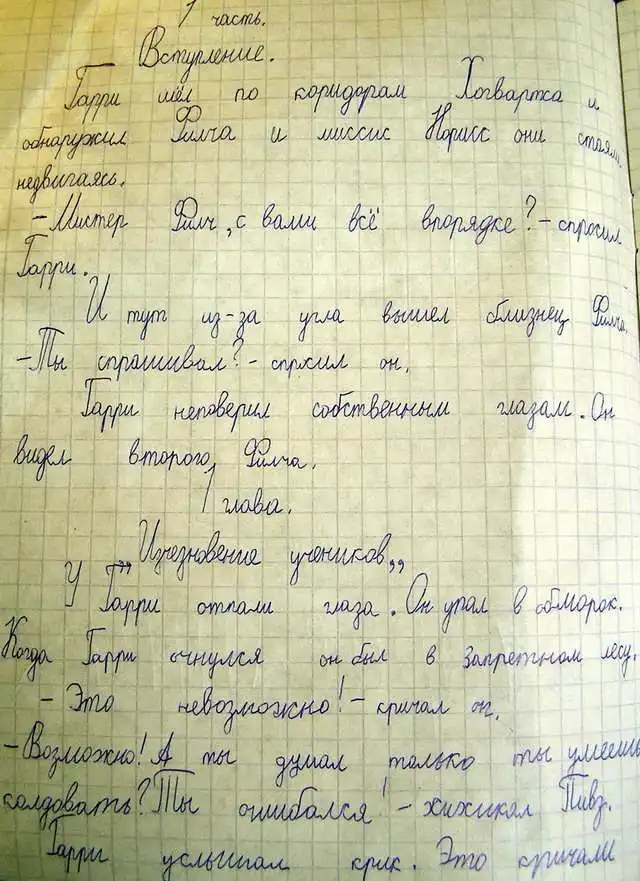 1 часть.
Вступление.
Гарри шёл по коридорам Хогвартса и
обнаружил Филча и миссис Норисс они стояли
недвигаясь.
- Мистер Филч, с вами всё впорядке? - спросил
Гарри.
И тут из-за угла вышел близнец Филча.
- Ты спрашивал? - спрхсил он.
Гарри неповерил собственным глазам. Он
видел второго Филча.
1 глава.
„Изчезновение учеников„
У Гарри отпали глаза. Он упал в обморок.
Когда Гарри очнулся он был в Запретном лесу.
- Это невозможно! - кричал он.
- Возможно! А ты думал только ты умеешь
колдовать? Ты ошибался! - хихикял Пивз.
Гарри услышал крик. Это кричали